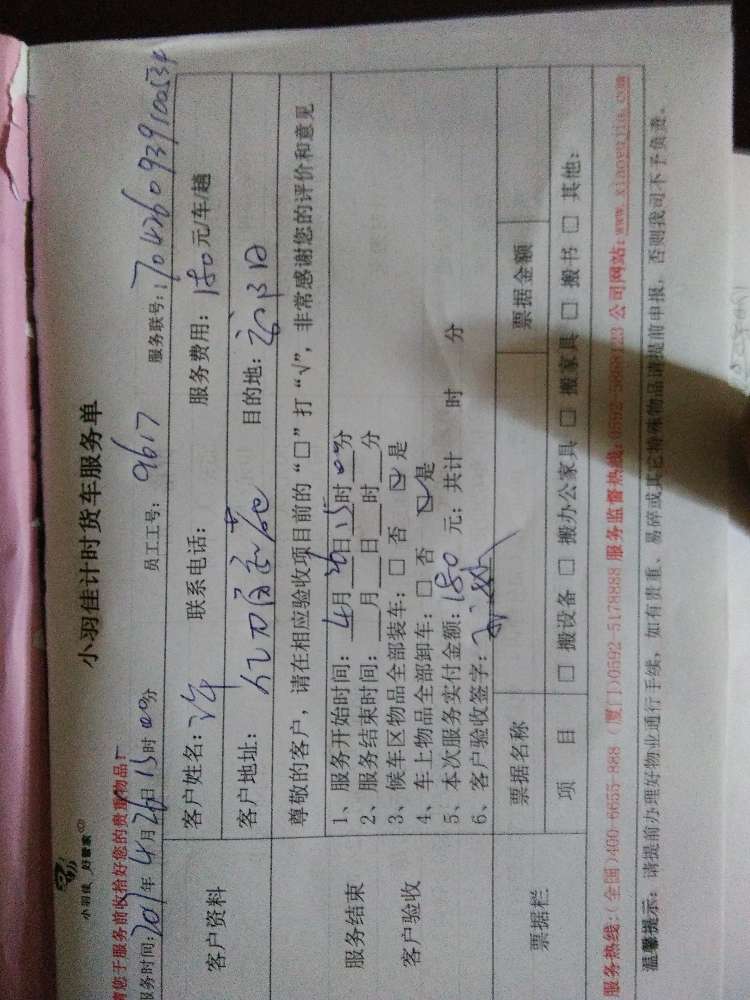 小羽佳 好管家
小羽佳计时货车服务单
请您于服务前收拾好您的贵重物品!
服务时间: 年4月26日15时00分 员工工号: 9617 服务联号:
客户资料
客户姓名: 许 联系电话: 服务费用: 180元/车/趟
客户地址: 目的地:
服务结束
客户验收
尊敬的客户，请在相应验收项目前的“□”打“√”，非常感谢您的评价和意见
1、服务开始时间: 4月26日15时00分
2、服务结束时间: 月 日 时 分
3、候车区物品全部装车: □ 否 ☑ 是
4、车上物品全部卸车: □ 否 ☑ 是
5、本次服务实付金额: 180 元; 共计 时 分
6、客户验收签字:
票据栏
票据名称 票据金额
项 目 □ 搬设备 □ 搬办公家具 □ 搬家具 □ 搬书 □ 其他:
服务热线:(全国)400-6655-888 (厦门)0592-5178888 服务监督热线: 公司网站:www.xiaoyujia.com
温馨提示: 请提前办理好物业通行手续，如有贵重、易碎或其它特殊物品请提前申报，否则我司不予负责。